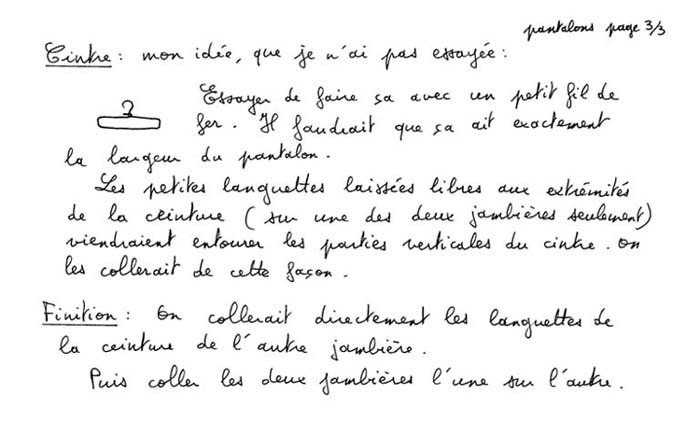 pantalons page 3/3
Cintre : mon idée, que je n'ai pas essayée :
Essayer de faire sa avec un petit fil de
fer. Il faudrait que sa ait exactement
la largeur du pantalon.
Les petites languettes laissées libres aux extrémités
de la ceinture (sur une des deux jambières seulement)
viendraient entourer les parties verticales du cintre. On
les collerait de cette façon.
Finition : On collerait directement les languettes de
la ceinture de l'autre jambière.
Puis coller les deux jambières l'une sur l'autre.